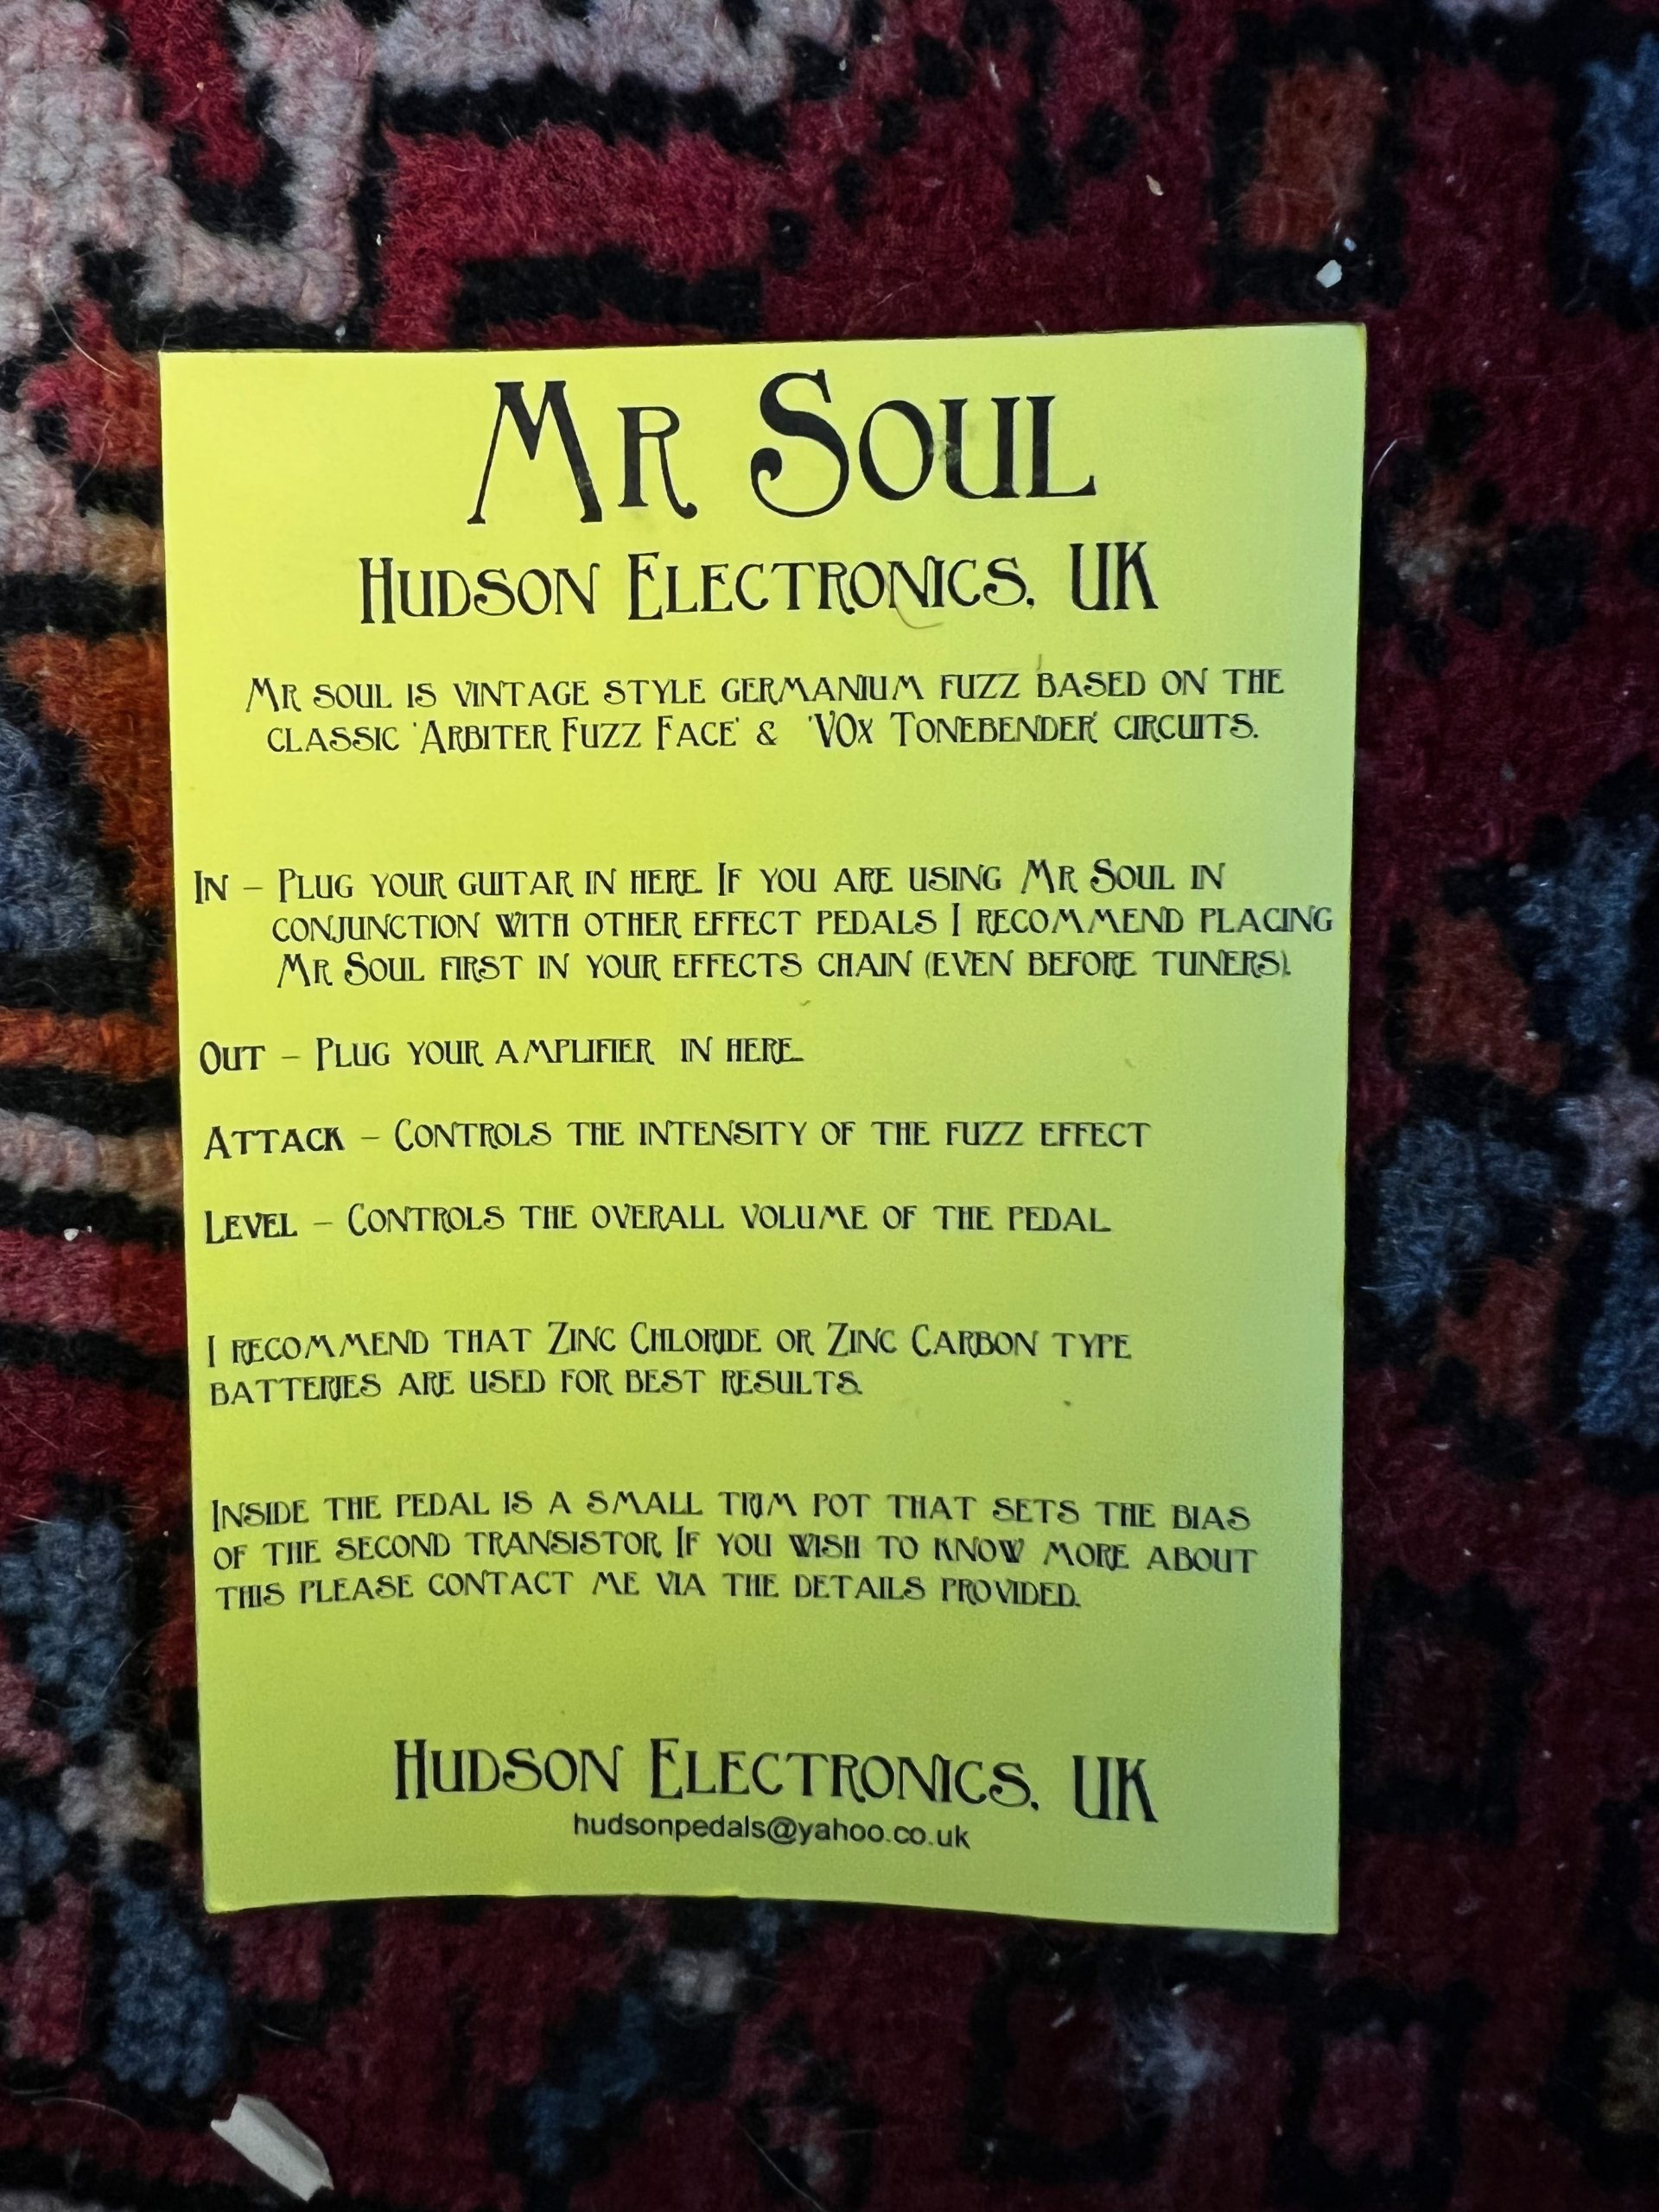 Mr Soul
Hudson Electronics, UK
Mr soul is vintage style germanium fuzz based on the
classic 'Arbiter Fuzz Face' & 'VOx Tonebender' circuits.
In – Plug your guitar in here. If you are using Mr Soul in
conjunction with other effect pedals I recommend placing
Mr Soul first in your effects chain (even before tuners).
Out – Plug your amplifier in here.
Attack – Controls the intensity of the fuzz effect
Level – Controls the overall volume of the pedal
I recommend that Zinc Chloride or Zinc Carbon type
batteries are used for best results.
Inside the pedal is a small trim pot that sets the bias
of the second transistor. If you wish to know more about
this please contact me via the details provided.
Hudson Electronics, UK
hudsonpedals@yahoo.co.uk